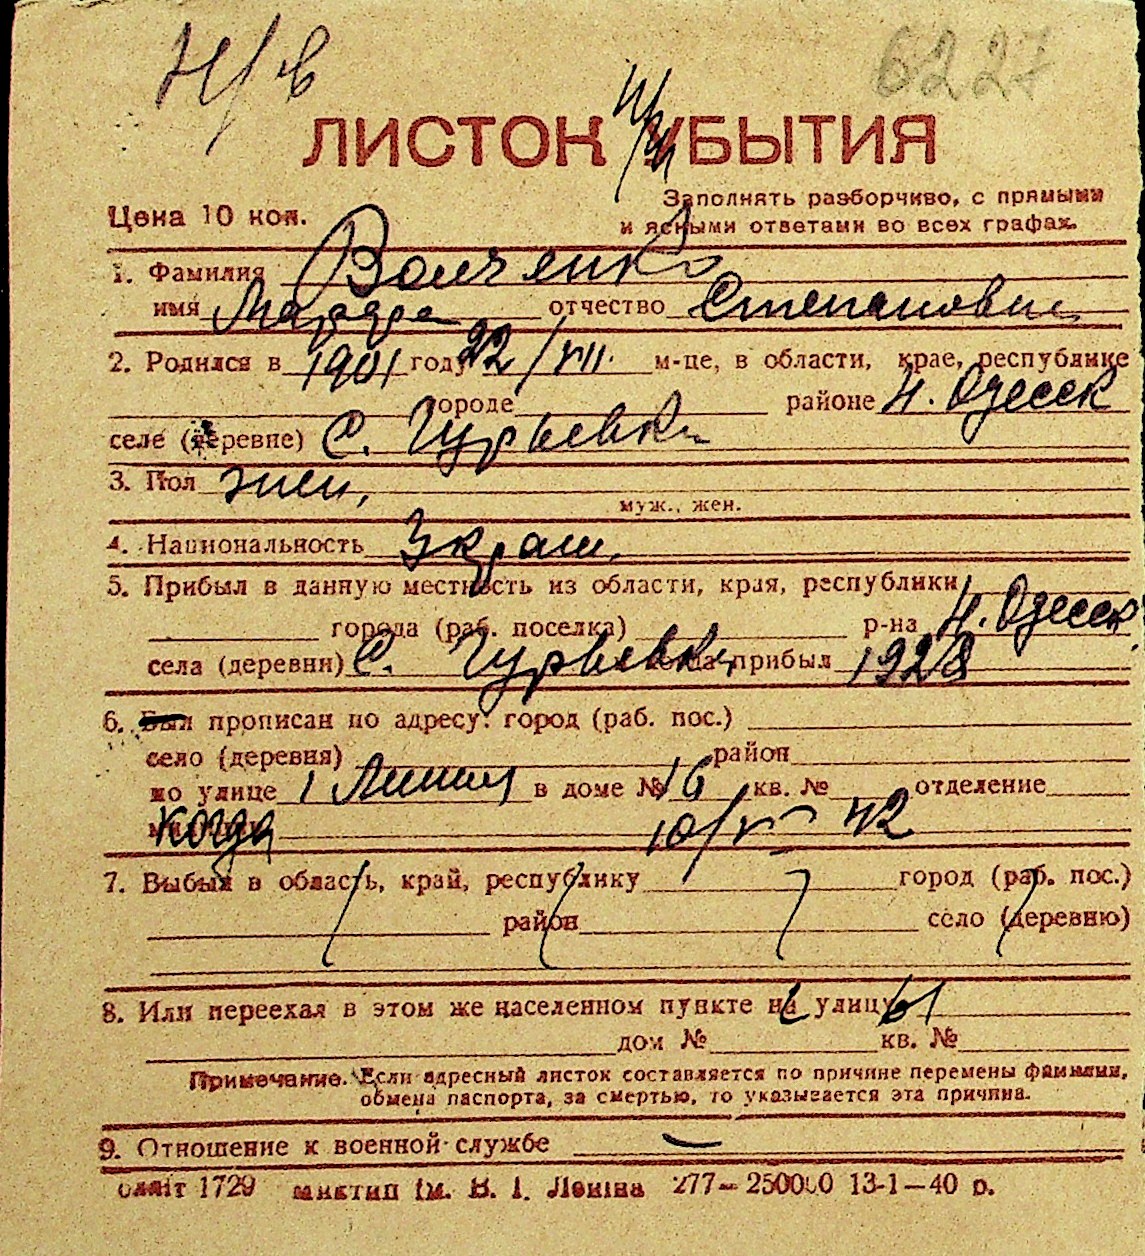 Н/в 6227
ЛИСТОК УБЫТИЯ
Цена 10 коп. Заполнять разборчиво, с прямыми
и ясными ответами во всех графах.
1. Фамилия Волченко
имя отчество Степановн
2. Родился в 1901 году 22/VII. м-це, в области, крае, республике
городе районе Н. Одесск
селе (деревне) С. Гурьевка
3. Пол жен,
муж., жен.
4. Национальность Украин.
5. Прибыл в данную местность из области, края, республики
города (раб. поселка) р-на Н. Одесск
села (деревни) С. Гурьевки когда прибыл 1928
6. Был прописан по адресу: город (раб. пос.)
село (деревня) район
по улице 1 Линия в доме № 16 кв. № отделение
когда 10/V 42
7. Выбыл в область, край, республику город (раб. пос.)
район село (деревню)
8. Или переехал в этом же населенном пункте на улицу
дом № кв. №
Примечание. Если адресный листок составляется по причине перемены фамилии,
обмена паспорта, за смертью, то указывается эта причина.
9. Отношение к военной службе —
1729 ім. В. І. Леніна 277—250000 13-1—40 р.